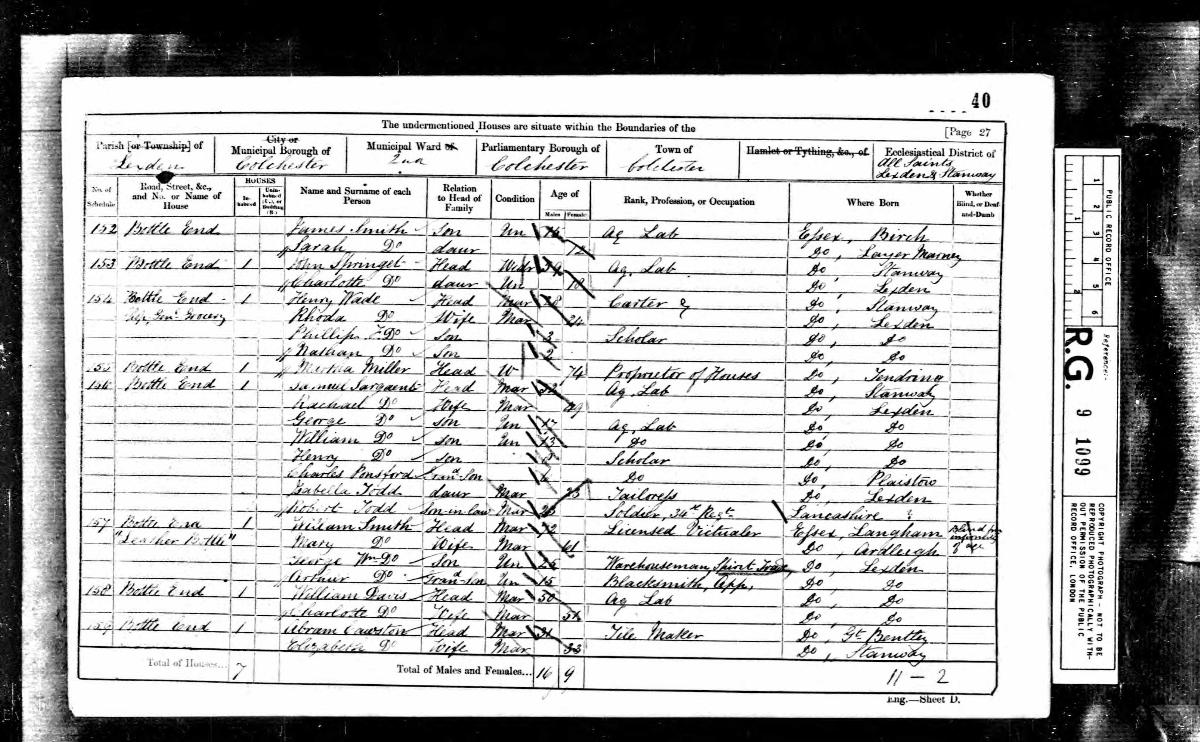 40
The undermentioned Houses are situate within the Boundaries of the
[Page 27
Parish [or Township] of Lexden
City or Municipal Borough of Colchester
Municipal Ward of 2nd
Parliamentary Borough of Colchester
Town of Colchester
Hamlet or Tything, &c., of
Ecclesiastical District of All Saints Lexden & Stanway
No. of Schedule
Road, Street, &c., and No. or Name of House
HOUSES
Inhabited
Uninhabited (U.), or Building (B.)
Name and Surname of each Person
Relation to Head of Family
Condition
Age of
Males
Females
Rank, Profession, or Occupation
Where Born
Whether Blind, or Deaf-and-Dumb
152 Bottle End James Smith Son Un Ag Lab Essex, Birch
Sarah Do daur 12 Do, Layer Marney
153 Bottle End 1 John Springet Head Widr 59 Ag. Lab Do, Stanway
Charlotte Do daur Un Do, Lexden
154 Bottle End 1 Henry Wade Head Mar 28 Carter & Do, Stanway
Grocery Rhoda Do Wife Mar 24 Do, Lexden
Phillip Do Son 3 Scholar Do, Do
Nathan Do Son 2 Do, Do
155 Bottle End 1 Martha Miller Head W 74 Proprietor of Houses Do, Tendring
156 Bottle End 1 Samuel Sargeant Head Mar Ag. Lab Do, Stanway
Rachael Do Wife Mar 49 Do, Lexden
George Do Son Un 17 Ag. Lab Do, Do
William Do Son Un 13 Do Do, Do
Henry Do Son Scholar Do, Do
Charles Ponsford Grand-Son Do Do, Plaistow
Isabella Todd daur Mar 23 Tailoress Do, Lexden
Robert Todd Son-in-law Mar Soldier, 34th Regt Lancashire
157 Bottle End 1 William Smith Head Mar 72 Licensed Vittualer Essex, Langham Blind from infirmity of age
"Leather Bottle" Mary Do Wife Mar 61 Do, Ardleigh
George Wm Do Son Un 25 Warehouseman, Spirit Trade Do, Lexden
Arthur Do Grand-Son Un 15 Blacksmith, App, Do, Do
158 Bottle End 1 William Davis Head Mar 50 Ag Lab Do, Do
Charlotte Do Wife Mar 51 Do, Do
159 Bottle End 1 Abram Cawston Head Mar 31 Tile Maker Do, Gt Bentley
Elizabeth Do Wife Mar 33 Do, Stanway
Total of Houses... 7
Total of Males and Females... 16 9
11 - 2
Eng.—Sheet D.
PUBLIC RECORD OFFICE
1 2 3 4 5 6
1 2
Reference:-
R.G. 9 1099
COPYRIGHT PHOTOGRAPH - NOT TO BE
REPRODUCED PHOTOGRAPHICALLY WITH-
OUT PERMISSION OF THE PUBLIC
RECORD OFFICE, LONDON